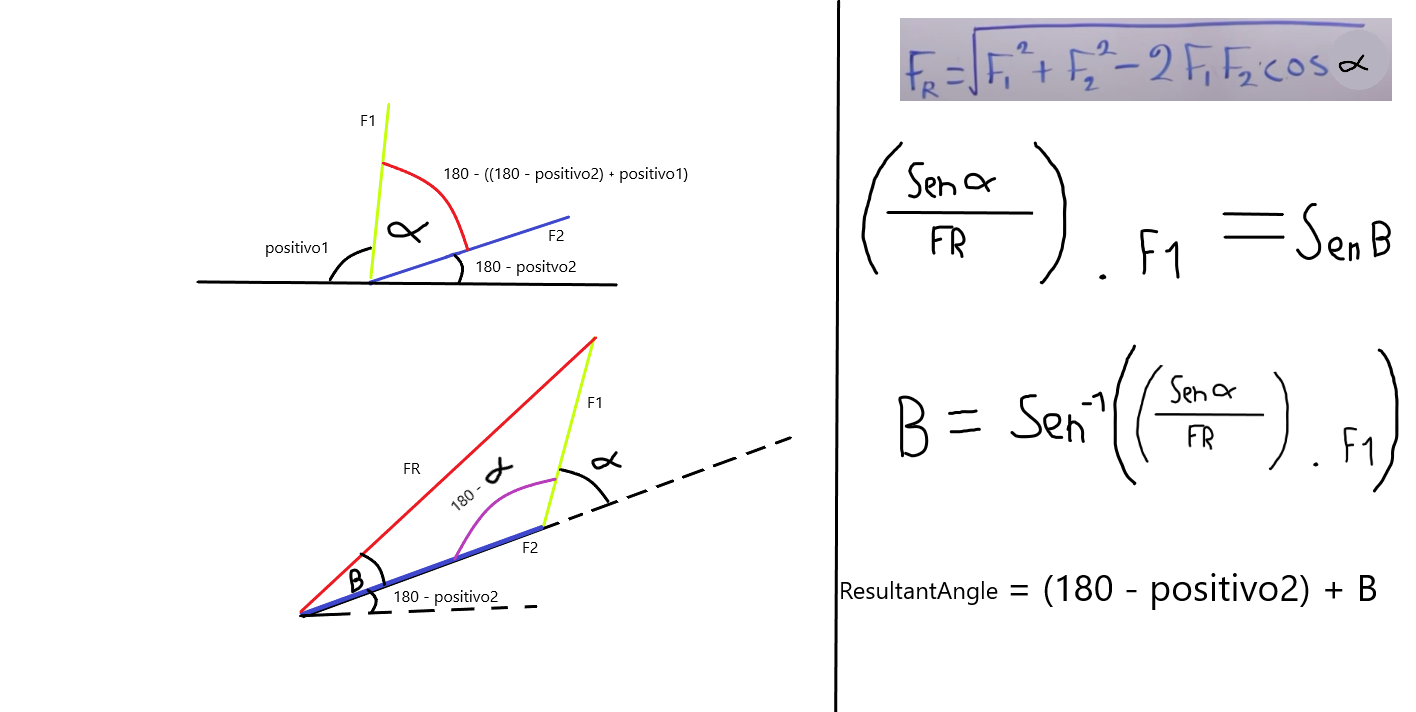 F1
180 - ((180 - positivo2) + positivo1)
α
F2
positivo1
180 - positvo2
F1
FR
180 - α
α
F2
B
180 - positivo2
F_R = √(F₁² + F₂² - 2F₁F₂·cos α)
(Sen α / FR) . F1 = Sen B
B = Sen⁻¹((Sen α / FR) . F1)
ResultantAngle = (180 - positivo2) + B